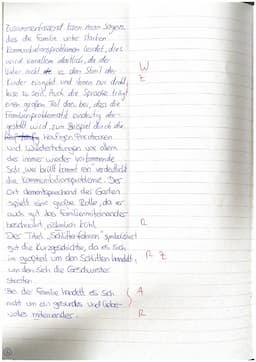 Zusammenfassend kann man sagen,
dass die Familie unter starken
Kommunikationsproblemen leidet, dies
wird vorallem deutlich, da der
Vater nicht in den Streit der
Kinder eingreift und ihnen nur droht,
leise zu sein. Auch die Sprache trägt
einen großen Teil dazu bei, dass die
Familienproblematik eindeutig dar-
gestellt wird, zum Beispiel durch die
häufigen Parataxen
und Wiederholungen vor allem
des immer wieder vorkommende
Satz „wer brüllt kommt rein" verdeutlicht
die Kommunikationsprobleme. Der
Ort dementsprechend der Garten
spielt eine große Rolle, da er
auch gut das Familienmiteinander
beschreibt, nämlich kühl.
Der Titel „Schlittenfahren" symbolisiert
gut die Kurzgeschichte, da es sich
im großteil um den Schlitten handelt,
um den sich die Geschwister
streiten.
Bei der Familie handelt es sich
nicht um ein gesundes und liebe-
volles miteinander.
W
Z
R
R Z
A
R